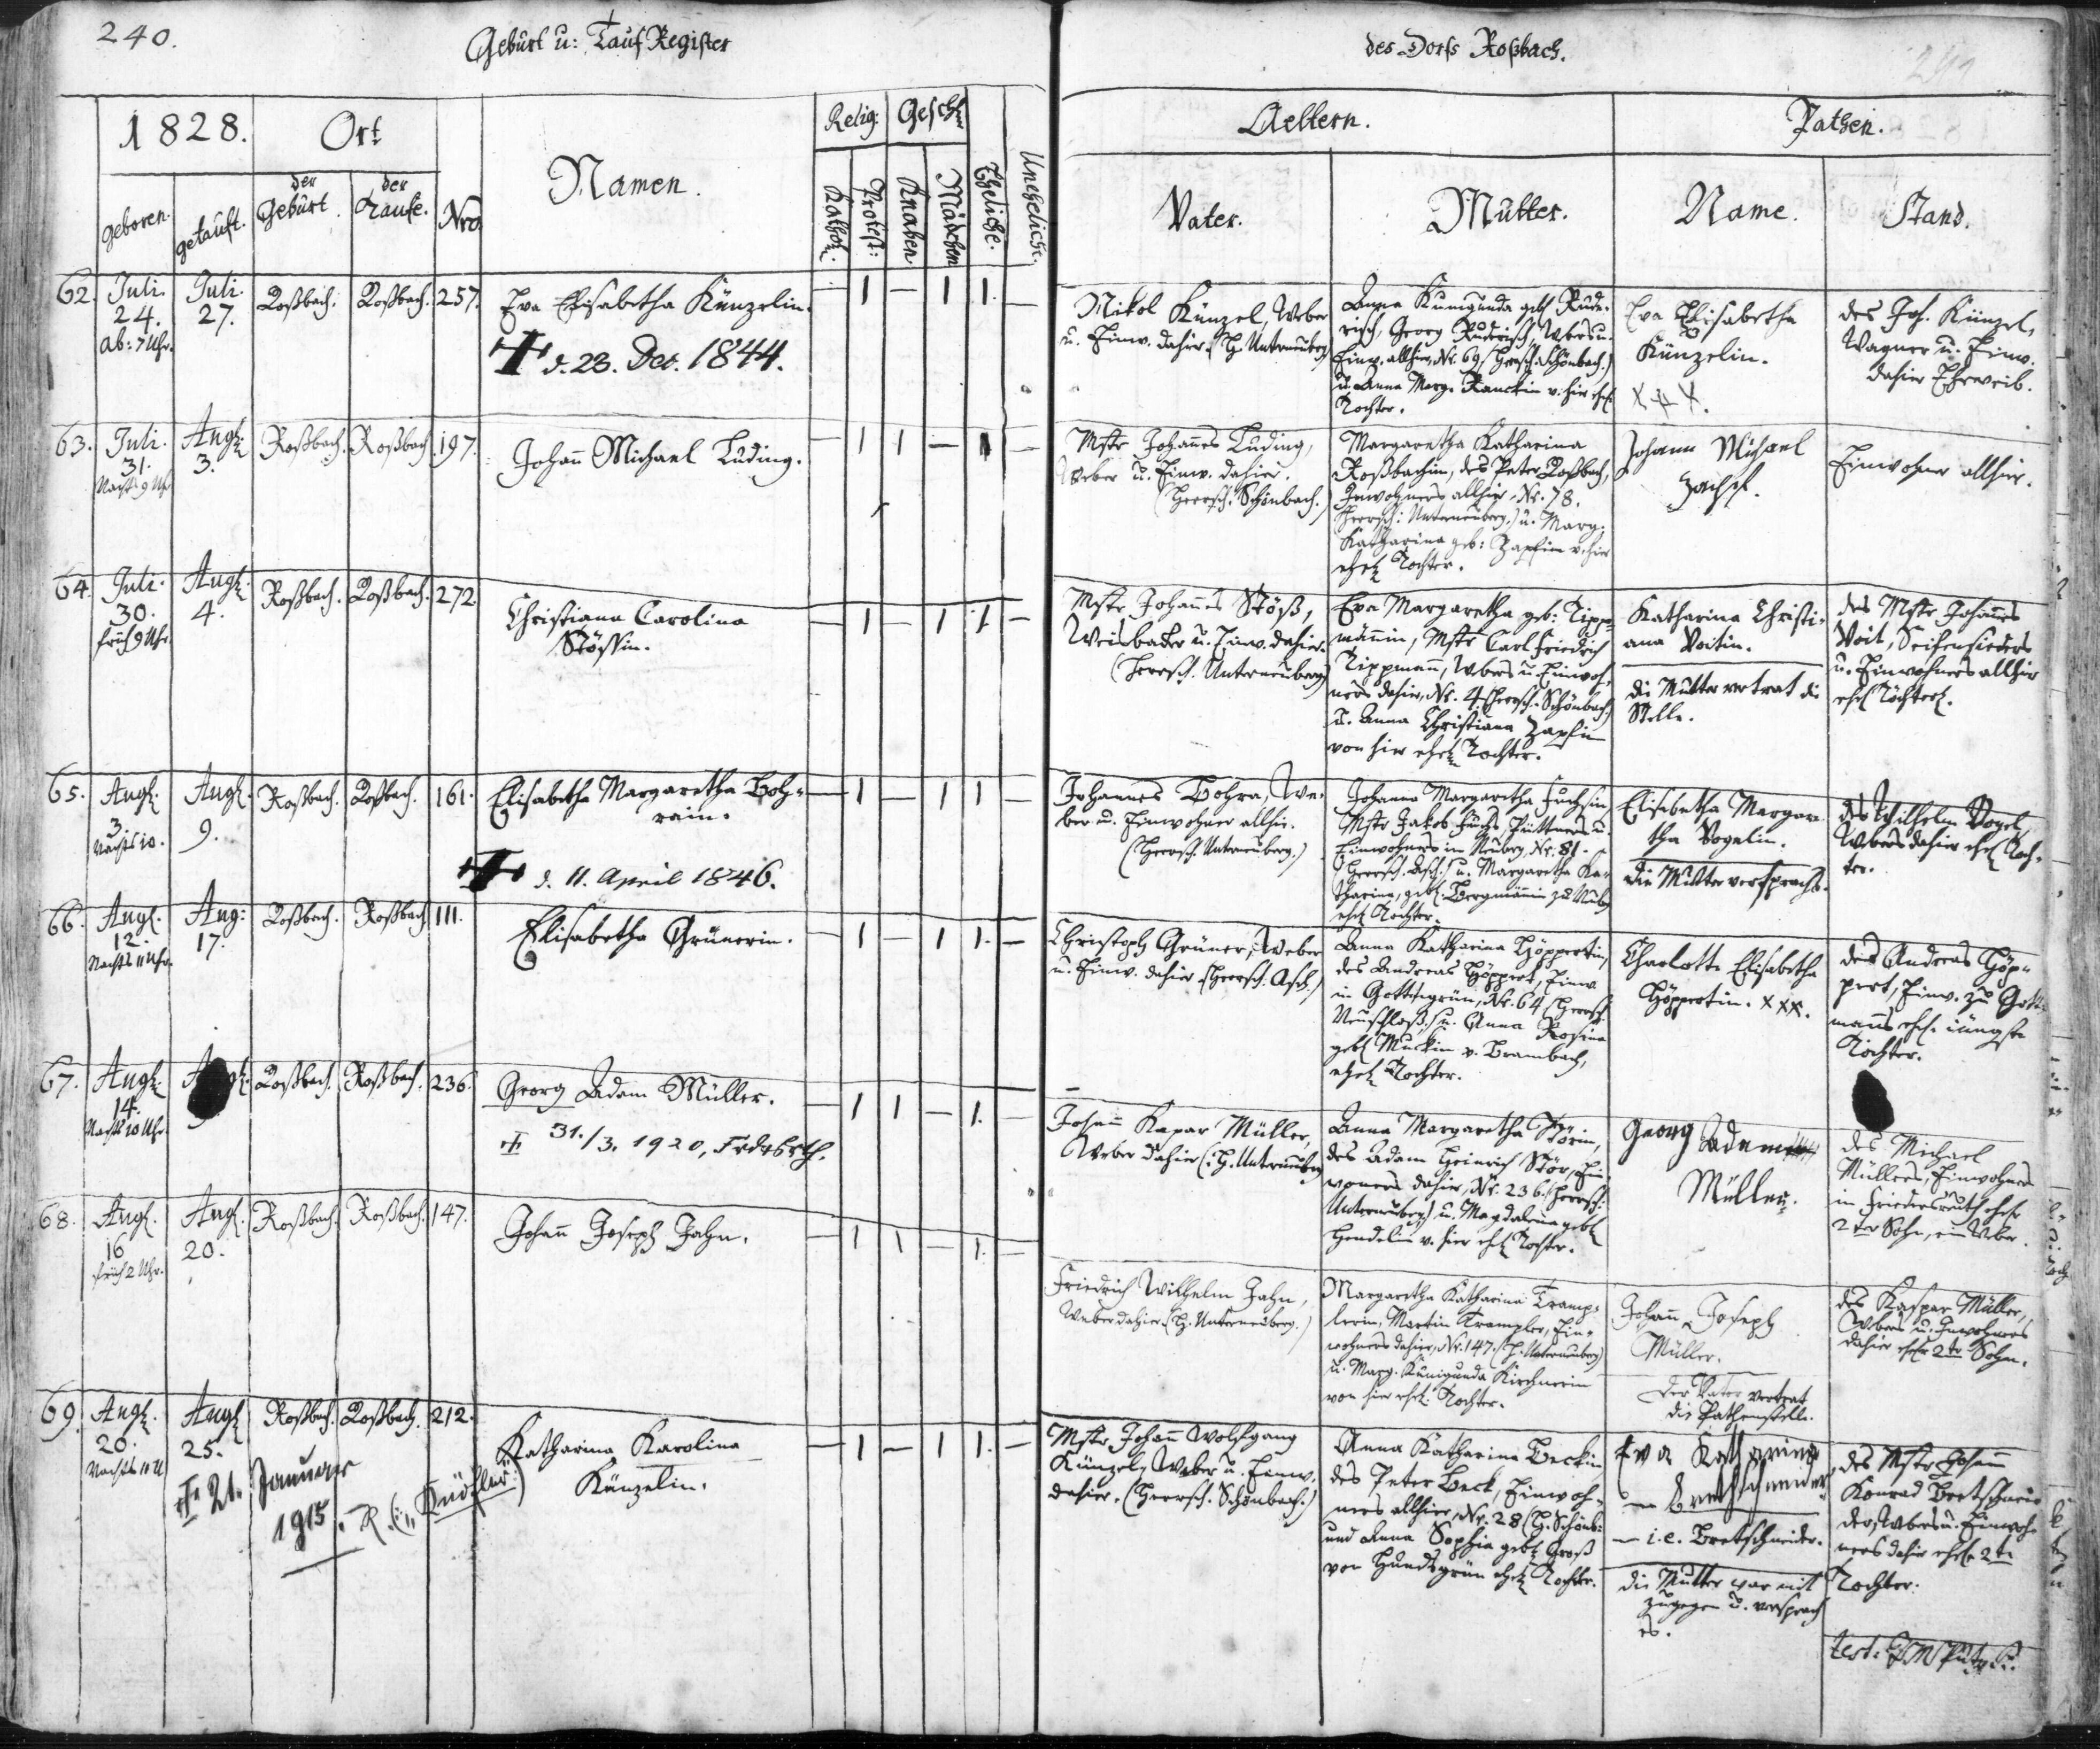 240.
Geburt u: Tauf Register
des Dorfs Roßbach.
1828.
Ort
Namen.
Relig:
Geschl.
Aeltern.
Pathen.
geboren.
getauft.
der Geburt.
der Taufe.
Nro.
Kathol.
Protest:
Knaben
Mädchen
Eheliche.
Uneheliche.
Vater.
Mutter.
Name.
Stand.
62.
Juli. 24. Ab: 7 Uhr.
Juli. 27.
Roßbach.
Roßbach.
257.
Eva Elisabetha Künzelin.
d. 23. Dec. 1844.
— 1 — 1 1. —
Nikol Künzel, Weber
u. Einw. dahier. (H. Unterneuberg)
Anna Kunigunda geb.
risch, Georg Ruderisch, Webers u.
Einw. allhier, Nr. 69. (Herrsch. Schönbach.)
u. Anna Marg. v. hier ehel.
Tochter.
Eva Elisabetha
Künzelin.
XXX.
des Joh. Künzel,
Wagner u. Einw.
dahier Eheweib.
63.
Juli. 31. Nachts 9 Uhr
Augl. 3.
Roßbach.
Roßbach
197.
Johann Michael Luding.
— 1 1 — 1 —
Mstr Johannes Luding,
Weber u. Einw. dahier.
(Herrsch. Schönbach.)
Margaretha Katharina
Roßbachin, des Peter Roßbach,
Inwohners allhier, Nr. 78.
(Herrsch: Unterneuberg.) u. Marg.
Katharina geb: Zapfin v. hier
ehel. Tochter.
Johann Michael
Einwohner allhier.
64.
Juli. 30. früh 9 Uhr.
Augl. 4.
Roßbach.
Roßbach.
272.
Christiana Carolina
Stößin.
— 1 — 1 1 —
Mstr Johannes Stöß,
Weisbacker u. Einw. dahier.
(Herrsch. Unterneuberg)
Eva Margaretha geb: Tipp=
männin, Mstr Carl Friedrich
Tippmann, Webers u. Einwoh=
ners dahier, Nr. 4. (Herrsch. Schönbach)
u. Anna Christiana Zapfin
von hier ehel. Tochter.
Katharina Christi=
ana Voitin.
die Mutter vertrat die
Stelle.
des Mstr Johannes
Voit, Seifensieders
u. Einwohners allhier
ehel.
65.
Augl. 3. Nachts 10.
Augl. 9.
Roßbach.
Roßbach.
161.
Elisabetha Margaretha Boh=
rain.
d. 11. April 1846.
— 1 — 1 1 —
Johannes Bohra, We=
ber u. Einwohner allhier.
(Herrsch. Unterneuberg.)
Johanna Margaretha Fuchsin,
Mstr Jakob Fuchs, Büttners u.
Einwohners in Neuberg, Nr. 81.
(Herrsch. Asch.) u. Margaretha Ka=
tharina, geb. Bergmännin zu Neub.
ehel. Tochter.
Elisabetha Margare
tha Vogelin.
die Mutter versprachs.
des Wilhelm Vogel,
Webers dahier ehel. Toch=
ter.
66.
Augl. 12. Nachts 11 Uhr.
Aug: 17.
Roßbach.
Roßbach
111.
Elisabetha Grünerin.
— 1 — 1 1. —
Christoph Grüner, Weber
u. Einw. dahier (Herrsch. Asch.)
Anna Katharina Höppertin,
des Andreas Höppert, Einw.
in Gottmannsgrün, Nr. 64. (Herrsch.
Neuschloß.) u. Anna Rosina
geb. v. Brambach,
ehel. Tochter.
Charlotte Elisabetha
Höppertin. XXX.
des Andreas Höp=
pert, Einw. zu Gott=
manns ehel. jüngste
Tochter.
67.
Augl. 14. Nachts 10 Uhr.
Roßbach.
Roßbach.
236.
Georg Adam Müller.
31./3. 1920,
— 1 1 — 1. —
Johann Kaspar Müller,
Weber dahier (H. Unterneuberg)
Anna Margaretha Störin,
des Adam Heinrich Stör, Ein=
woners dahier, Nr. 236. (Herrsch:
Unterneuberg) u. Magdalena geb.
Hendelin v. hier ehel. Tochter.
Georg Adam
Müller.
des Michael
Müllers, Einwohners
in Friedersreuth ehel.
2ter Sohn, ein Weber.
68.
Augl. 16 früh 2 Uhr.
Augl. 20.
Roßbach.
Roßbach.
147.
Johann Joseph Jahn.
— 1 1 — 1. —
Friedrich Wilhelm Jahn,
Weber dahier. (H. Unterneuberg.)
Margaretha Katharina Tramp=
lerin, Martin Trampler, Ein=
wohners dahier, Nr. 147. (H. Unterneuberg)
u. Marg. Kunigunda Kirchnerin
von hier ehel. Tochter.
Johann Joseph
Müller.
der Vater vertrat
die Pathenstelle.
des Kaspar Müller,
Webers u. Inwohners
dahier ehel. 2ter Sohn.
69.
Augl. 20. Nachts 10 U
Augl 25.
Roßbach.
Roßbach.
212.
Katharina Karolina
Künzelin.
21. Januar
1915.
— 1 — 1 1. —
Mstr Johann Wolfgang
Künzel, Weber u. Einw.
dahier. (Herrsch. Schönbach.)
Anna Katharina Beckin,
des Peter Beck, Einwoh=
ners allhier, Nr. 28 (H. Schönb:
und Anna Sophia geb. Groß
von Hundsgrün ehel. Tochter.
Eva Katharina
— i.e. Bretschneider.
die Mutter war mit
zugegen u. versprach
es.
des Mstr Johann
Konrad Bretschnei=
der, Webers u. Einwoh=
ners dahier ehel. 2te
Tochter.